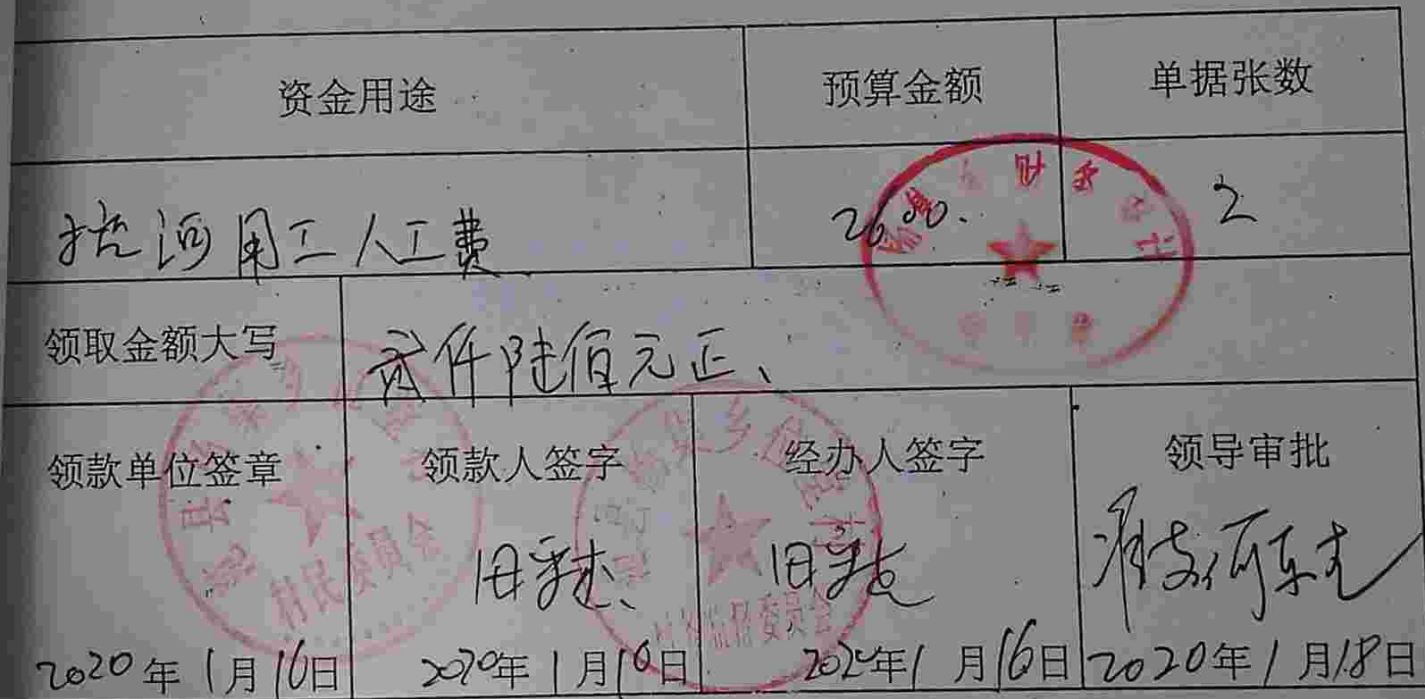 资金用途 预算金额 单据张数
挖河用工人工费 2600. 2
领取金额大写 贰仟陆佰元正、
领款单位签章 领款人签字 经办人签字 领导审批
准支
村民委员会
委员会
2020年1月16日 2020年1月16日 2020年1月16日 2020年1月18日